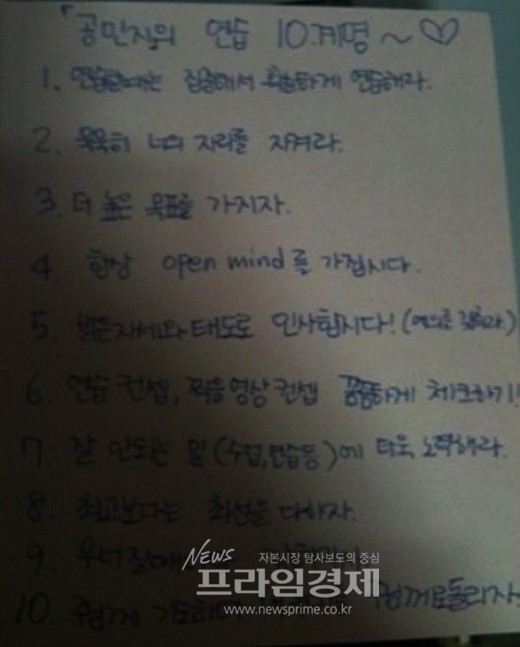 「공민지의 연습 10계명~♡
1. 연습할때는 집중해서 확실하게 연습해라.
2. 묵묵히 너의 자리를 지켜라.
3. 더 높은 목표를 가지자.
4. 항상 open mind를 가집시다.
5. 밝은자세와태도로 인사합시다! (예의를 갖춰라)
6. 연습 컨셉, 찍을영상컨셉 꼼꼼하게 체크하기!
7. 잘 안되는 일 (수업,연습등)에 더욱 노력해라.
8. 최고보다는 최선을 다하자.
9. 무너질때
10. 주님께 주님께로돌리자
NEWS 자본시장 탐사보도의 중심
프라임경제
www.newsprime.co.kr